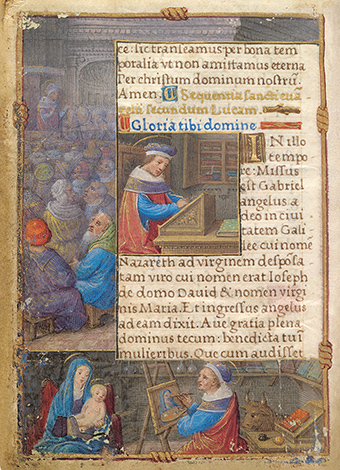 ce: sic transeamus per bona tem
poralia vt non amittamus eterna
Per christum dominum nostrũ.
Amen. Sequentia sancti euã
gelii secundum Lucam.
Gloria tibi domine
IN illo
tempo
re: Missus
est Gabriel
angelus a
deo in ciui
tatem Gali
lee cui nome
Nazareth ad virginem desposa
tam viro cui nomen erat Ioseph
de domo Dauid & nomen virgi
nis Maria. Et ingressus angelus
ad eam dixit. Aue gratia plena
dominus tecum: benedicta tu i
mulieribus. Que cum audisset